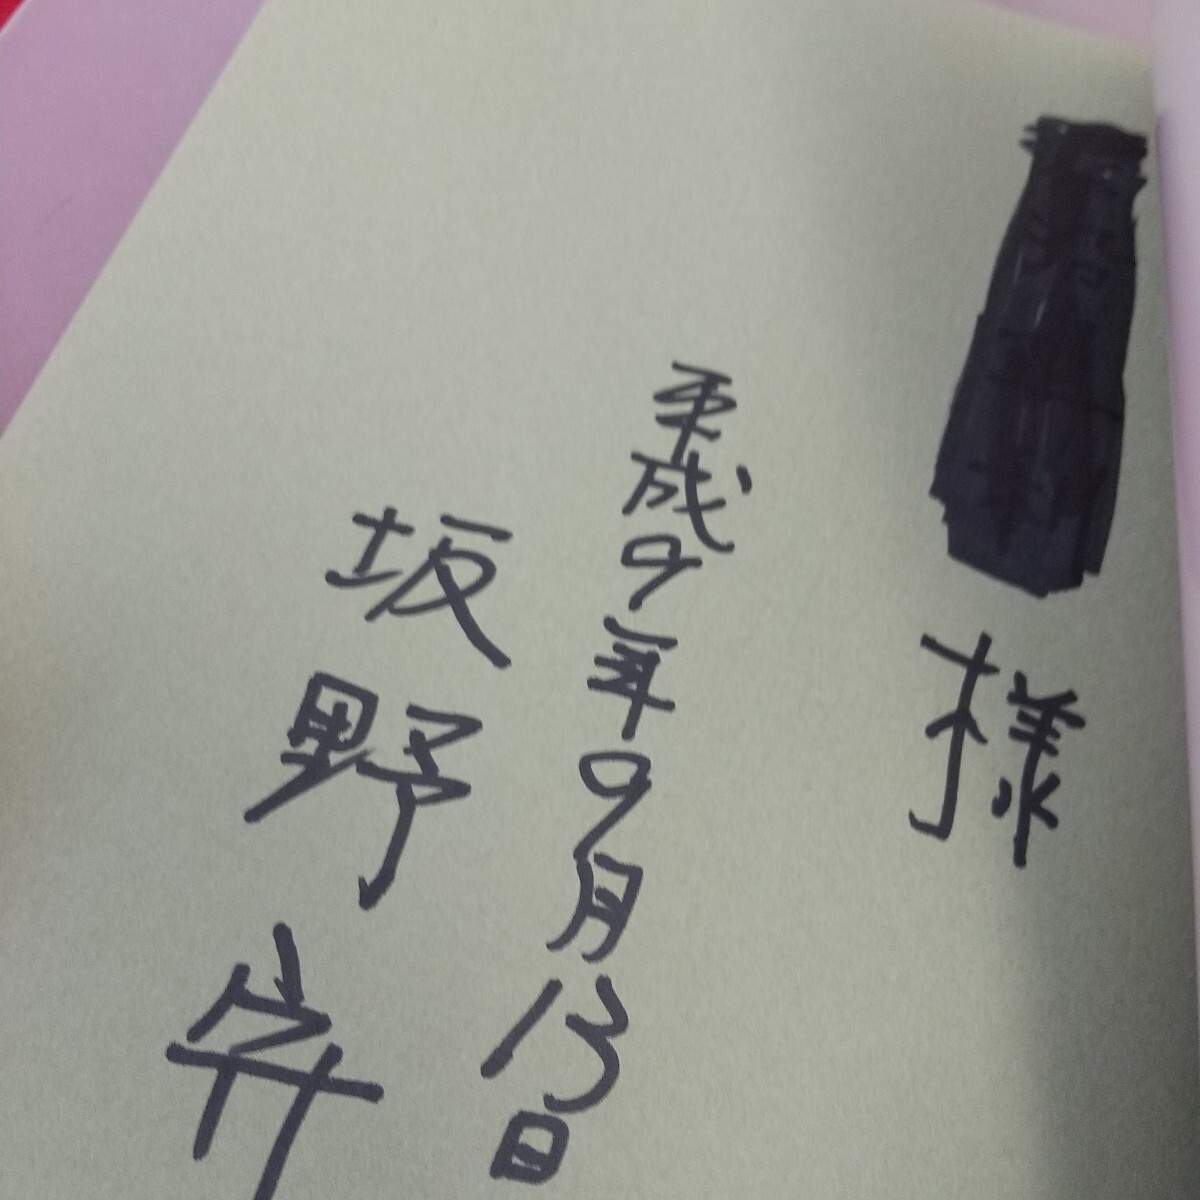 様
平成9年9月13日
坂野弁